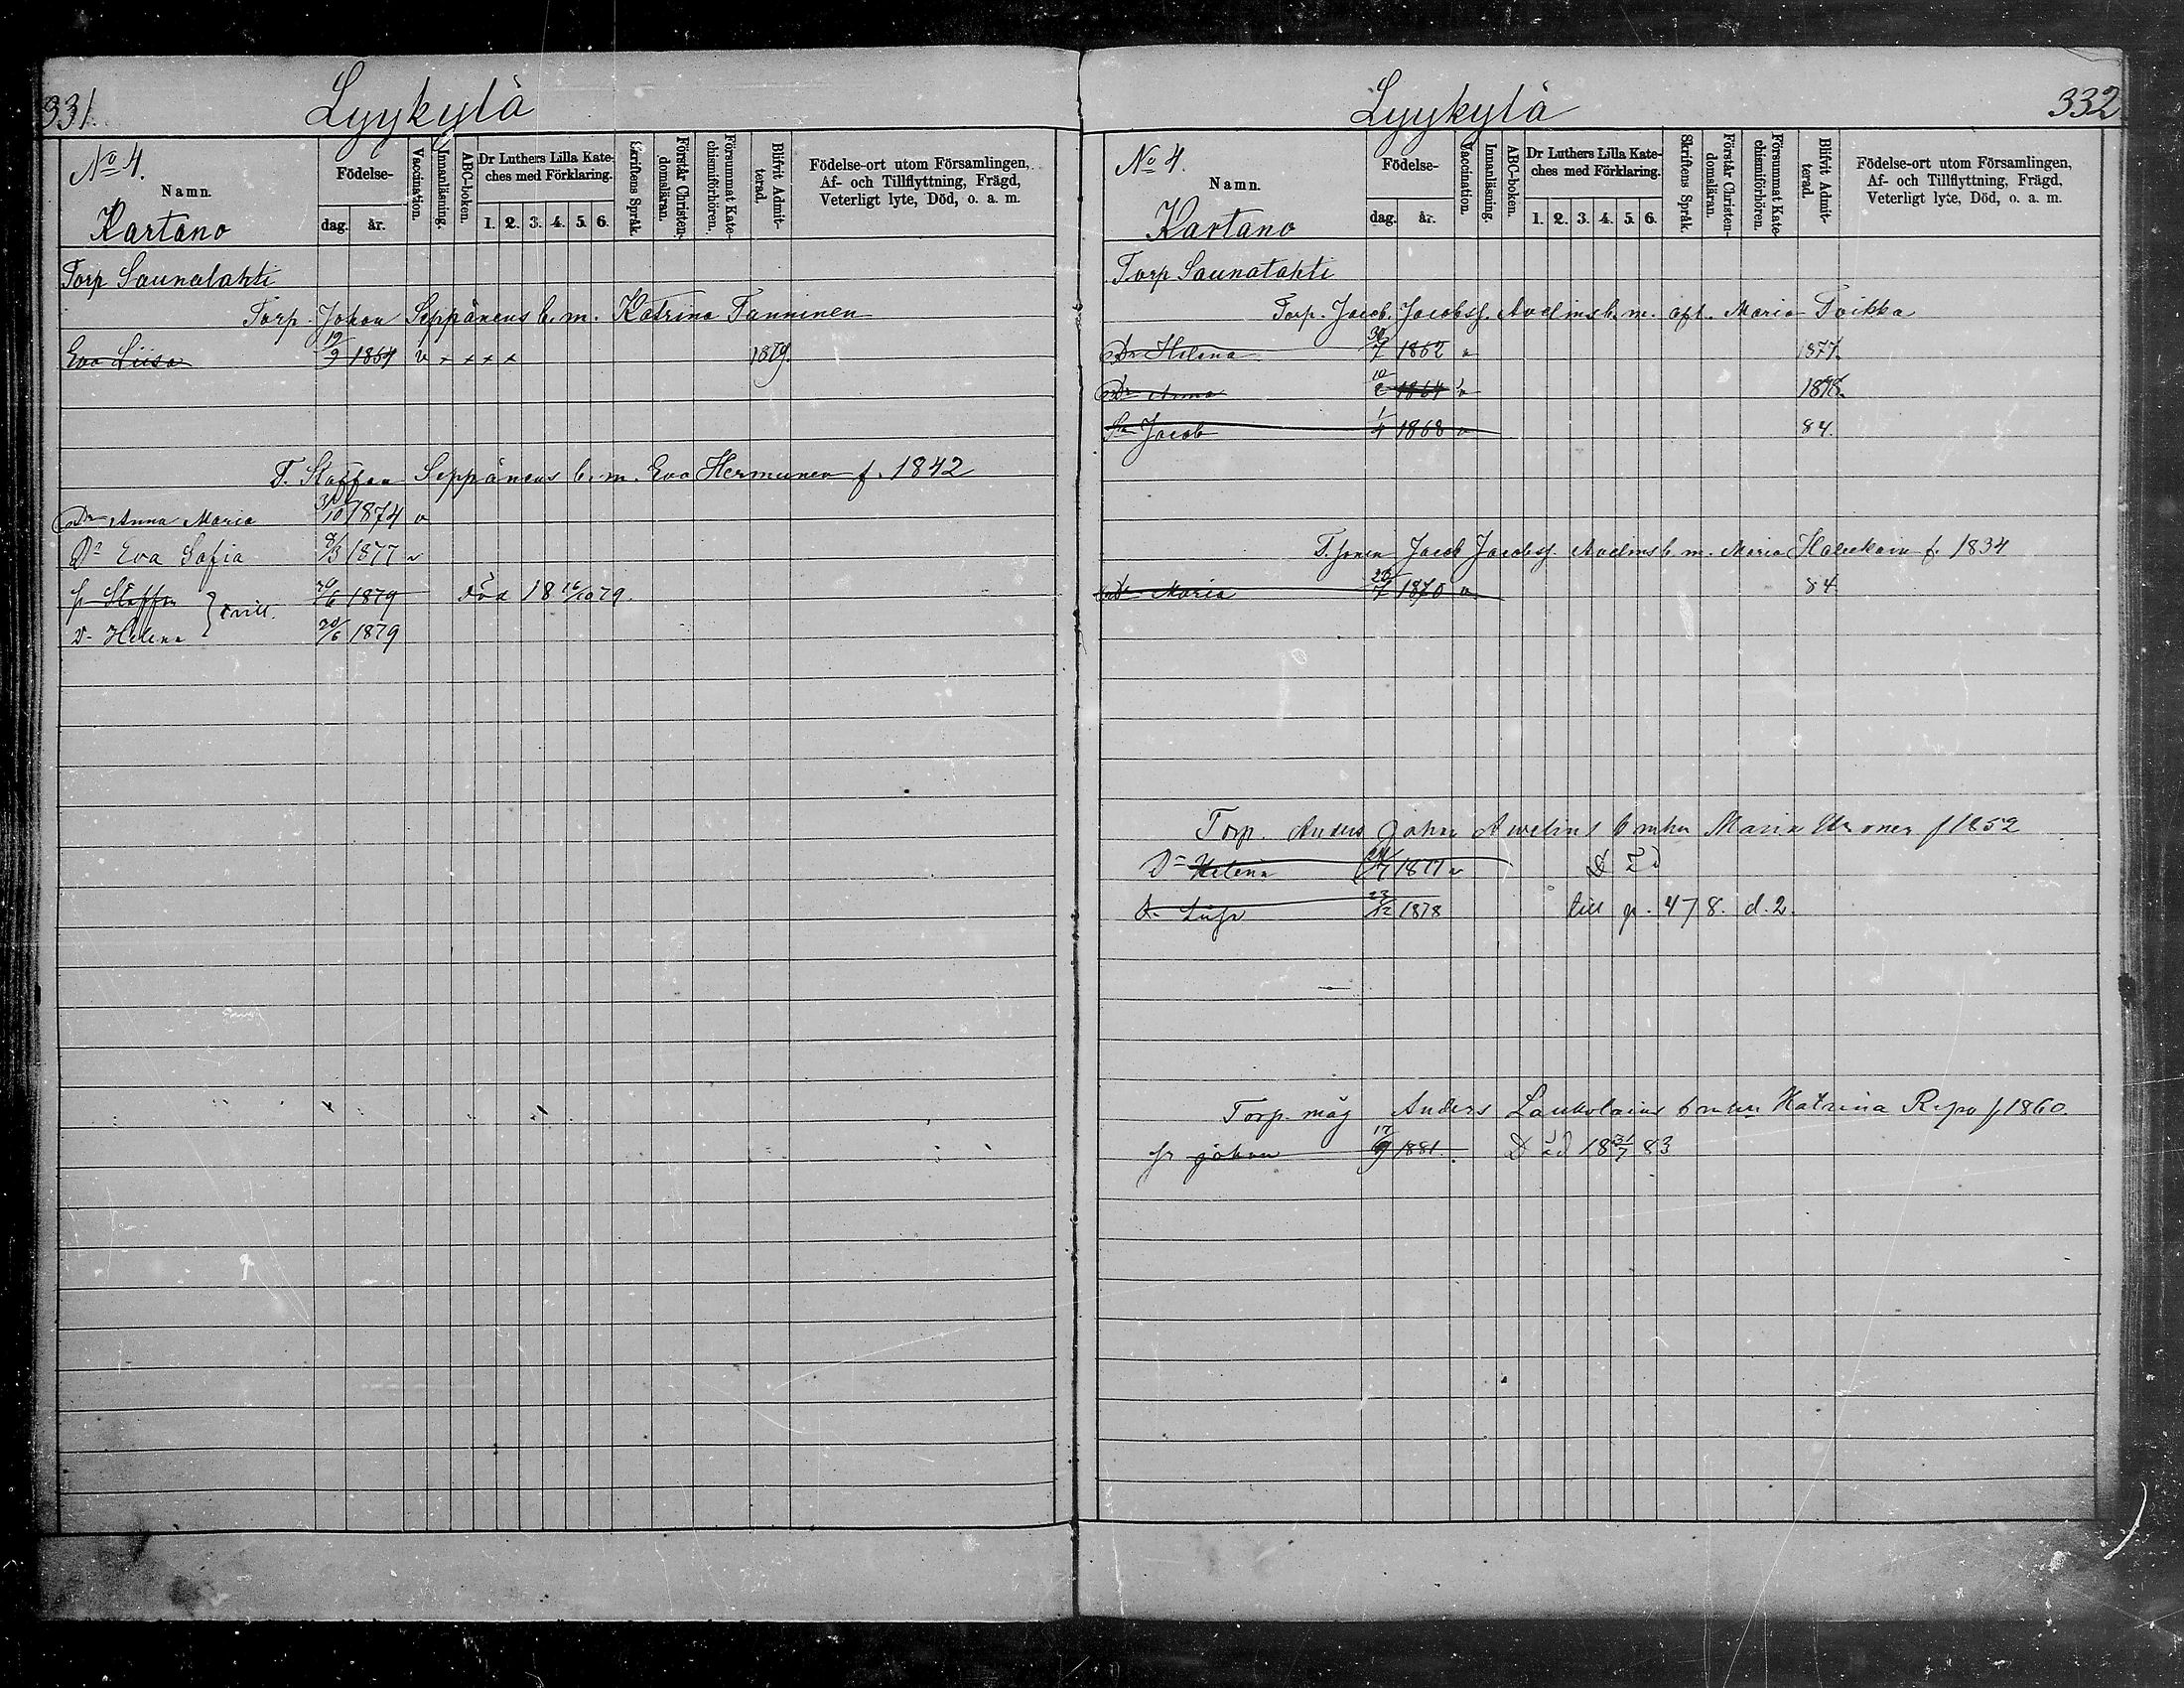 331.
Lyykylä
No 4.
Namn.
Kartano
Födelse-
dag. år.
Vaccination.
Innanläsning.
ABC-boken.
Dr Luthers Lilla Kate-
ches med Förklaring.
1. 2. 3. 4. 5. 6.
Skriftens Språk.
Förstår Christen-
domsläran.
Försummat Kate-
chismiförhören.
Blifvit Admit-
terad.
Födelse-ort utom Församlingen,
Af- och Tillflyttning, Frägd,
Veterligt lyte, Död, o. a. m.
Torp Saunalahti
Torp. Johan Seppänens b. m. Katrina Tanninen
Eva Liisa 19/9 1864 v x x x x 1879.
T. Staffan Seppänens b. m. Eva Hermunen f. 1842
Dr Anna Maria 31/10 1874 v
Dr Eva Sofia 8/3 1877 v
sr Staffan } tvill. 20/6 1879 död 18 16/10 79.
Dr Helena 20/6 1879
332
Lyykylä
No 4.
Namn.
Kartano
Födelse-
dag. år.
Vaccination.
Innanläsning.
ABC-boken.
Dr Luthers Lilla Kate-
ches med Förklaring.
1. 2. 3. 4. 5. 6.
Skriftens Språk.
Förstår Christen-
domsläran.
Försummat Kate-
chismiförhören.
Blifvit Admit-
terad.
Födelse-ort utom Församlingen,
Af- och Tillflyttning, Frägd,
Veterligt lyte, Död, o. a. m.
Torp Saunalahti
Torp. Jacob Jacobss. Avelins b. m. aft. Maria Toikka
Dr Helena 30/7 1862 v 1877.
Dr Anna 10/2 1864 v 1878.
Sr Jacob 1/4 1868 v 84.
T. sonen Jacob Jacobss. Avelins b. m. Maria f. 1834
Dr Maria 20/7 1870 v 84
Torp. Anders Johan Avelins b m hu Maria f 1852
Dr Helena 1877 v
D. 23/12 1878 till p. 478. d. 2.
Torp. måg Anders Laukolains b m hu Katrina Repo f 1860.
sr Johan 17/9 1881. Död 18 31/7 83